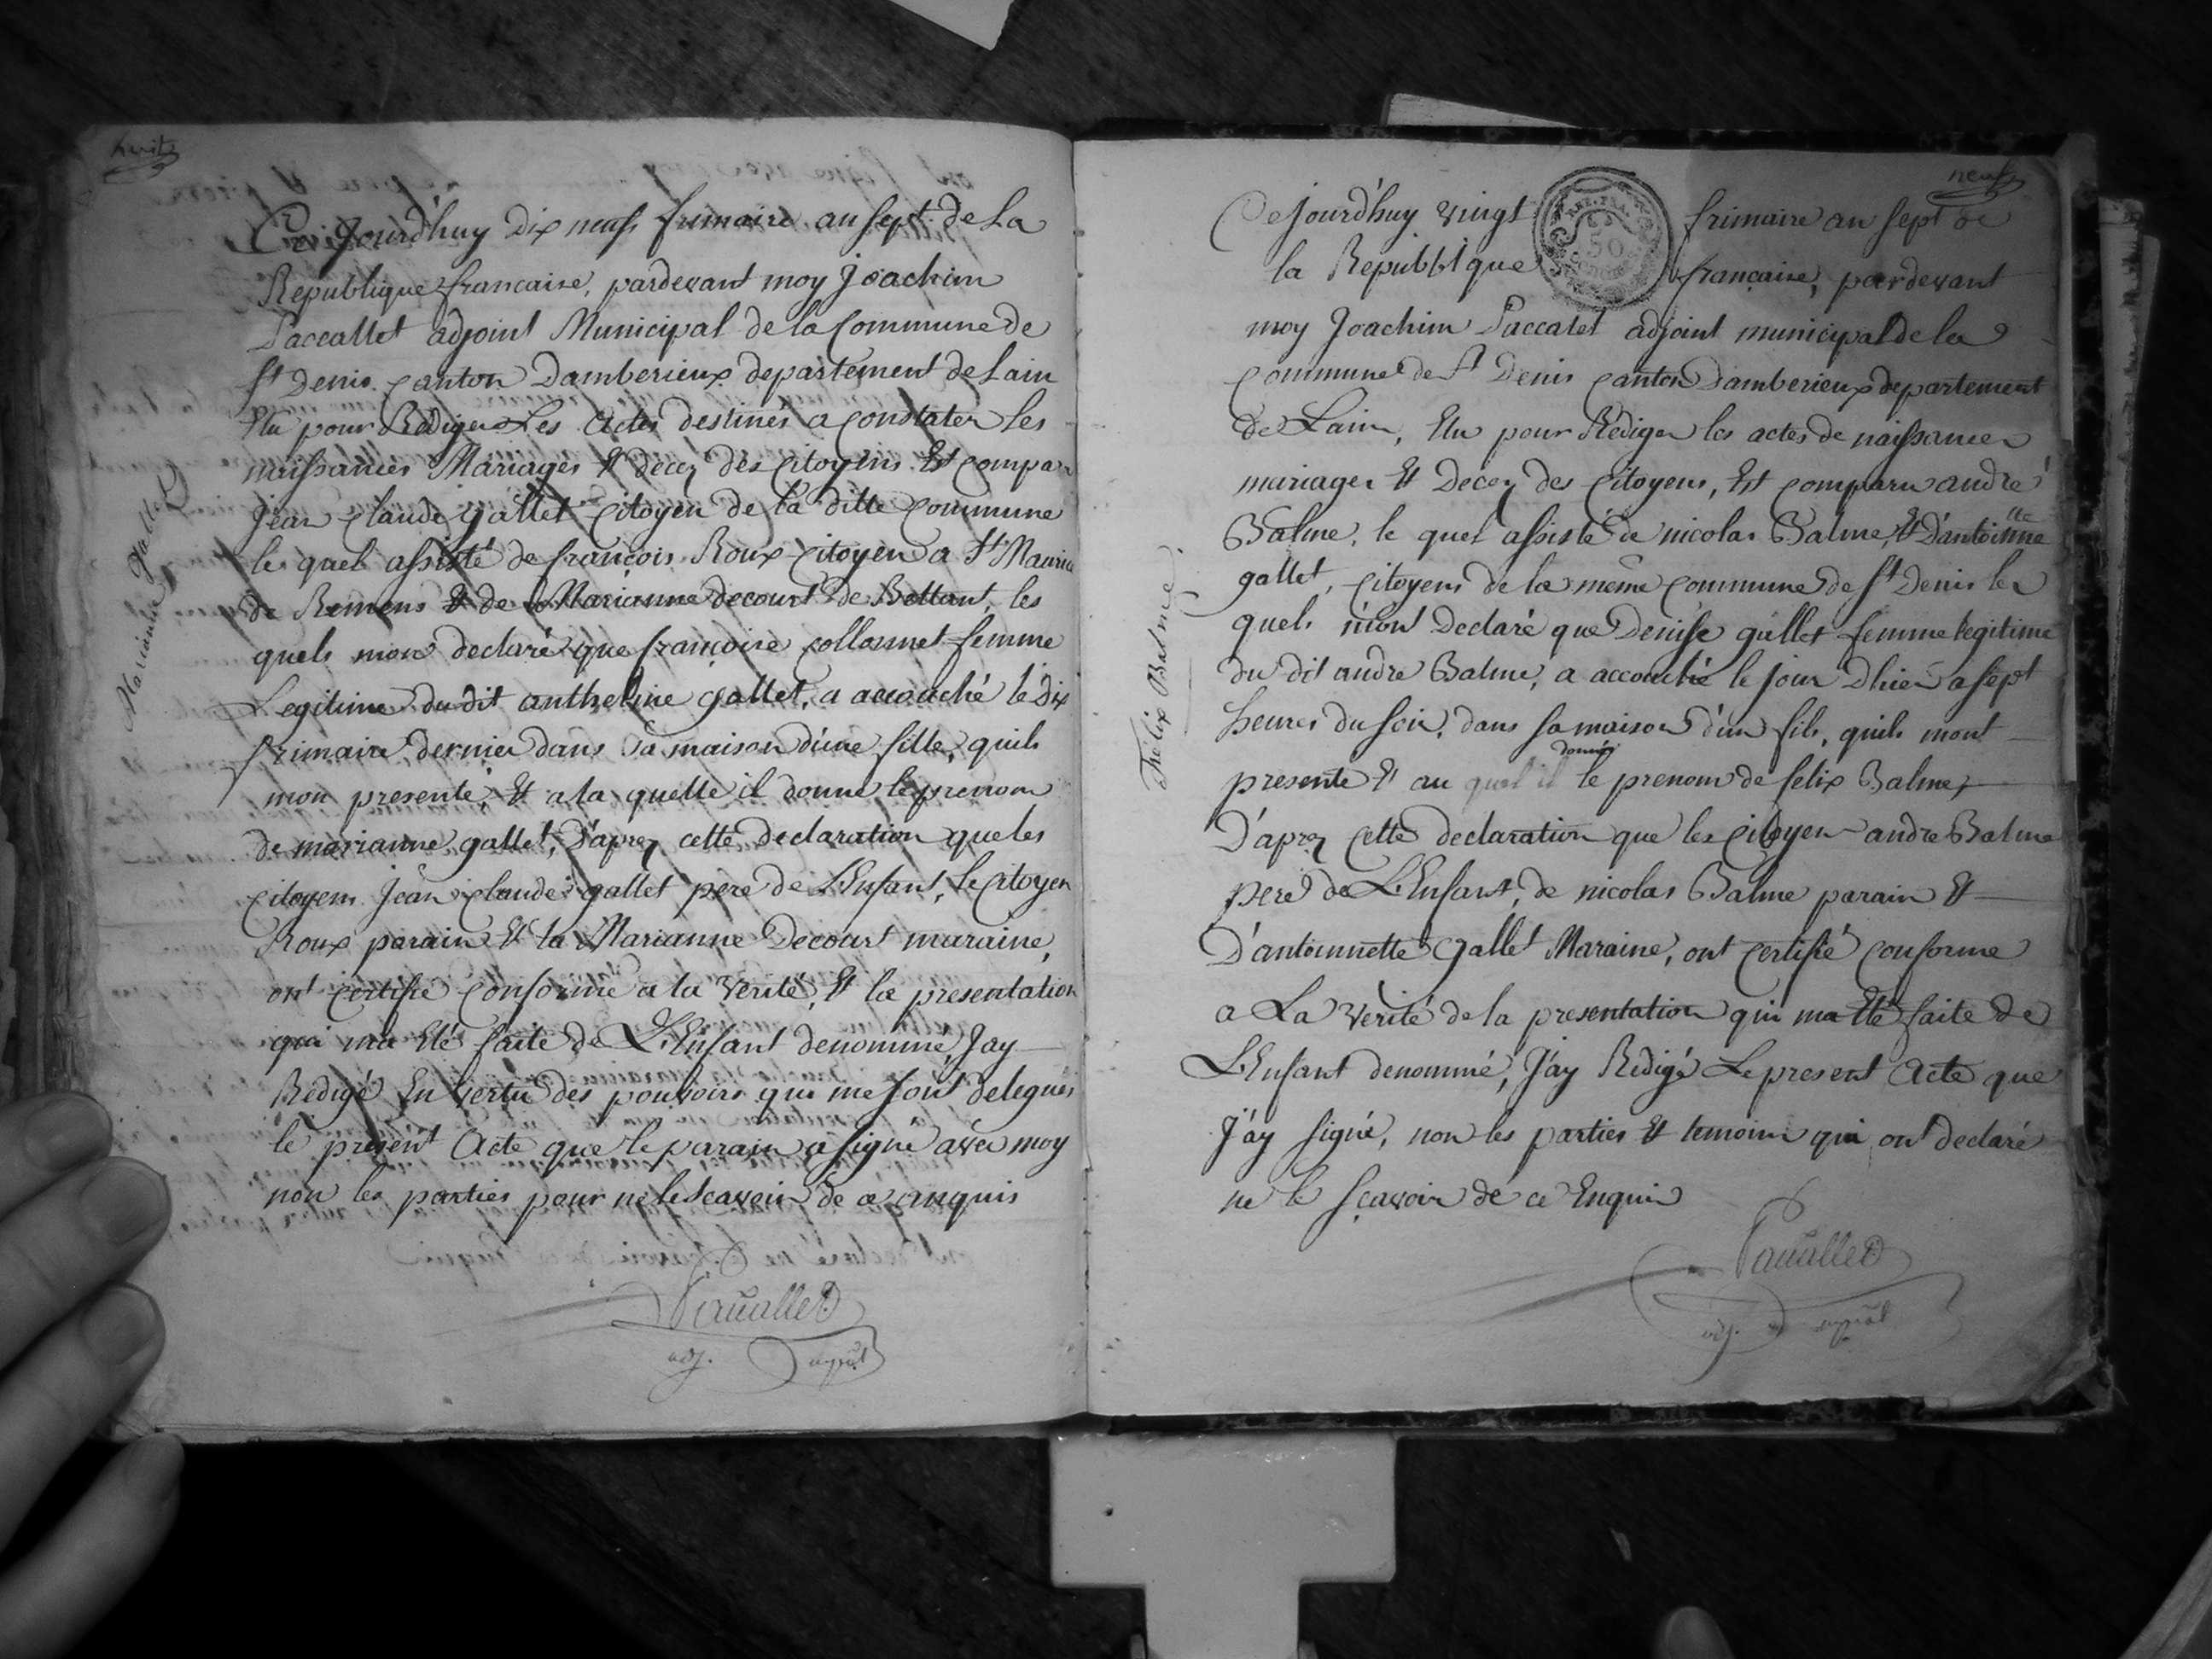 huit
Cejourd'huy dix neuf frimaire an sept de La
Republique francaise, pardevant moy Joachim
Paccallet adjoint Municipal de la Commune de
St Denis canton Damberieux departement de Lain
Elu pour Rediger Les Actes destinés a constater les
naissances Mariages Et decez des citoyens Est compa
Jean claude gallet citoyen de la ditte commune
le quel assisté de françois Roux citoyen a St Maurice
de Remens Et de Marianne decourt de Bettant, les
quels mon declaré que françoise collonnet femme
Legitime du dit anthelme gallet, a accouché le Dix
frimaire dernier dans sa maison d'une fille, quils
mon presenté, Et a la quelle il donne le prenom
de marianne gallet, D'aprez cette declaration que les
citoyens Jean claude gallet pere de L'Enfant, le citoyen
Roux parain Et la Marianne Decourt maraine,
ont certifié conforme a la verité, Et la presentation
qui ma Eté faite de L'Enfant denommé, Jay
Redigé En vertu des pouvoirs qui me sont delegués
le present Acte que le parain a signé avec moy
non les parties pour ne le scavoir de ce enquis
Paccallet
adj. mpal
Marianne Gallet
neuf
Cejourd'huy vingt frimaire an sept de
la Republique française, pardevant
moy Joachim Paccalet adjoint municipal de la
commune de St Denis canton Damberieux departement
de Lain, Elu pour Rédiger les actes de naissances
mariages Et Decez des citoyens, Est comparu andré
Balme, le quel assisté de nicolas Balme, Et D'antoinne
tte
gallet, citoyens de la même commune de St Denis les
quels m'ont Declaré que Denise gallet femme legitime
du dit andre Balme, a accouché le jour Dhier a sept
heures du soir, dans sa maison d'un fils, quils mont
donné
presenté Et au quel il le prenom de felix Balme
D'aprez cette declaration que les citoyen andre Balme
pere de L'Enfant, de nicolas Balme parain Et
D'antoinnette Gallet Maraine, ont certifié conforme
a La verité de la presentation qui ma Eté faite de
L'Enfant denommé, J'ay Redigé Le present Acte que
J'ay signé, non les parties Et temoins qui ont declaré
ne le sçavoir de ce Enquis
Paccallet
adj. mpal
Thélix Balme
REP. FRA.
50